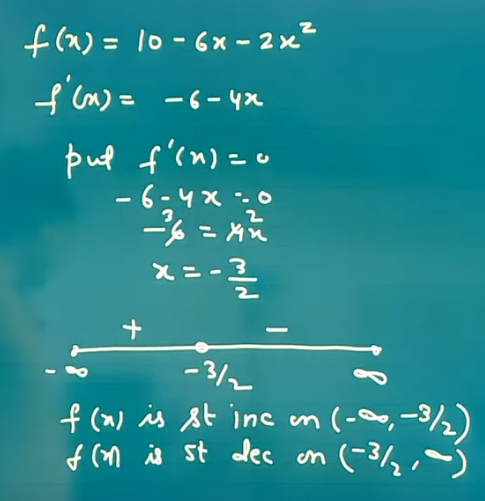 f(x) = 10 - 6x - 2x²
f'(x) = -6-4x
put f'(x) = 0
-6-4x = 0
-6̸³ = 4̸²x
x = -3/2
+ -
-∞ -3/2 ∞
f(x) is st inc on (-∞, -3/2)
f(x) is st dec on (-3/2, ∞)